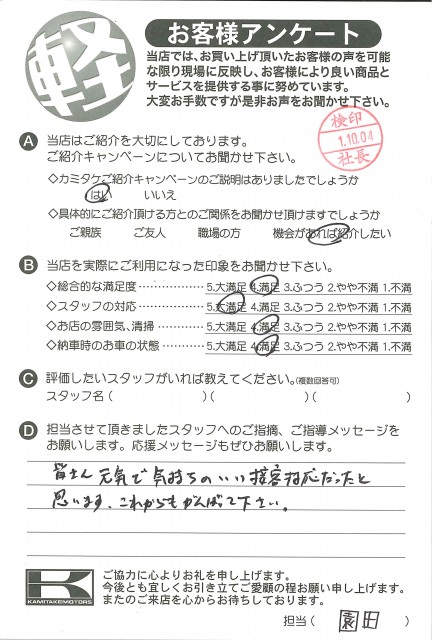 軽
お客様アンケート
当店では、お買い上げ頂いたお客様の声を可能
な限り現場に反映し、お客様により良い商品と
サービスを提供する事に努めています。
大変お手数ですが是非お声をお聞かせ下さい。
検印
1.10.04
社長
A 当店はご紹介を大切にしております。
ご紹介キャンペーンについてお聞かせ下さい。
◇カミタケご紹介キャンペーンのご説明はありましたでしょうか
はい いいえ
◇具体的にご紹介頂ける方とのご関係をお聞かせ頂けますでしょうか
ご親族 ご友人 職場の方 機会があれば紹介したい
B 当店を実際にご利用になった印象をお聞かせ下さい。
◇総合的な満足度………………5.大満足 4.満足 3.ふつう 2.やや不満 1.不満
◇スタッフの対応………………5.大満足 4.満足 3.ふつう 2.やや不満 1.不満
◇お店の雰囲気、清掃…………5.大満足 4.満足 3.ふつう 2.やや不満 1.不満
◇納車時のお車の状態…………5.大満足 4.満足 3.ふつう 2.やや不満 1.不満
C 評価したいスタッフがいれば教えてください。(複数回答可)
スタッフ名( )( )( )
D 担当させて頂きましたスタッフへのご指摘、ご指導メッセージを
お願いします。応援メッセージもぜひお願いします。
皆さん元気で気持ちのいい接客対応だったと
思います。これからもがんばって下さい。
K
KAMITAKEMOTORS
ご協力に心よりお礼を申し上げます。
今後とも宜しくお引き立てご愛顧の程お願い申し上げます。
またのご来店を心からお待ちしております。
担当( 園田 )